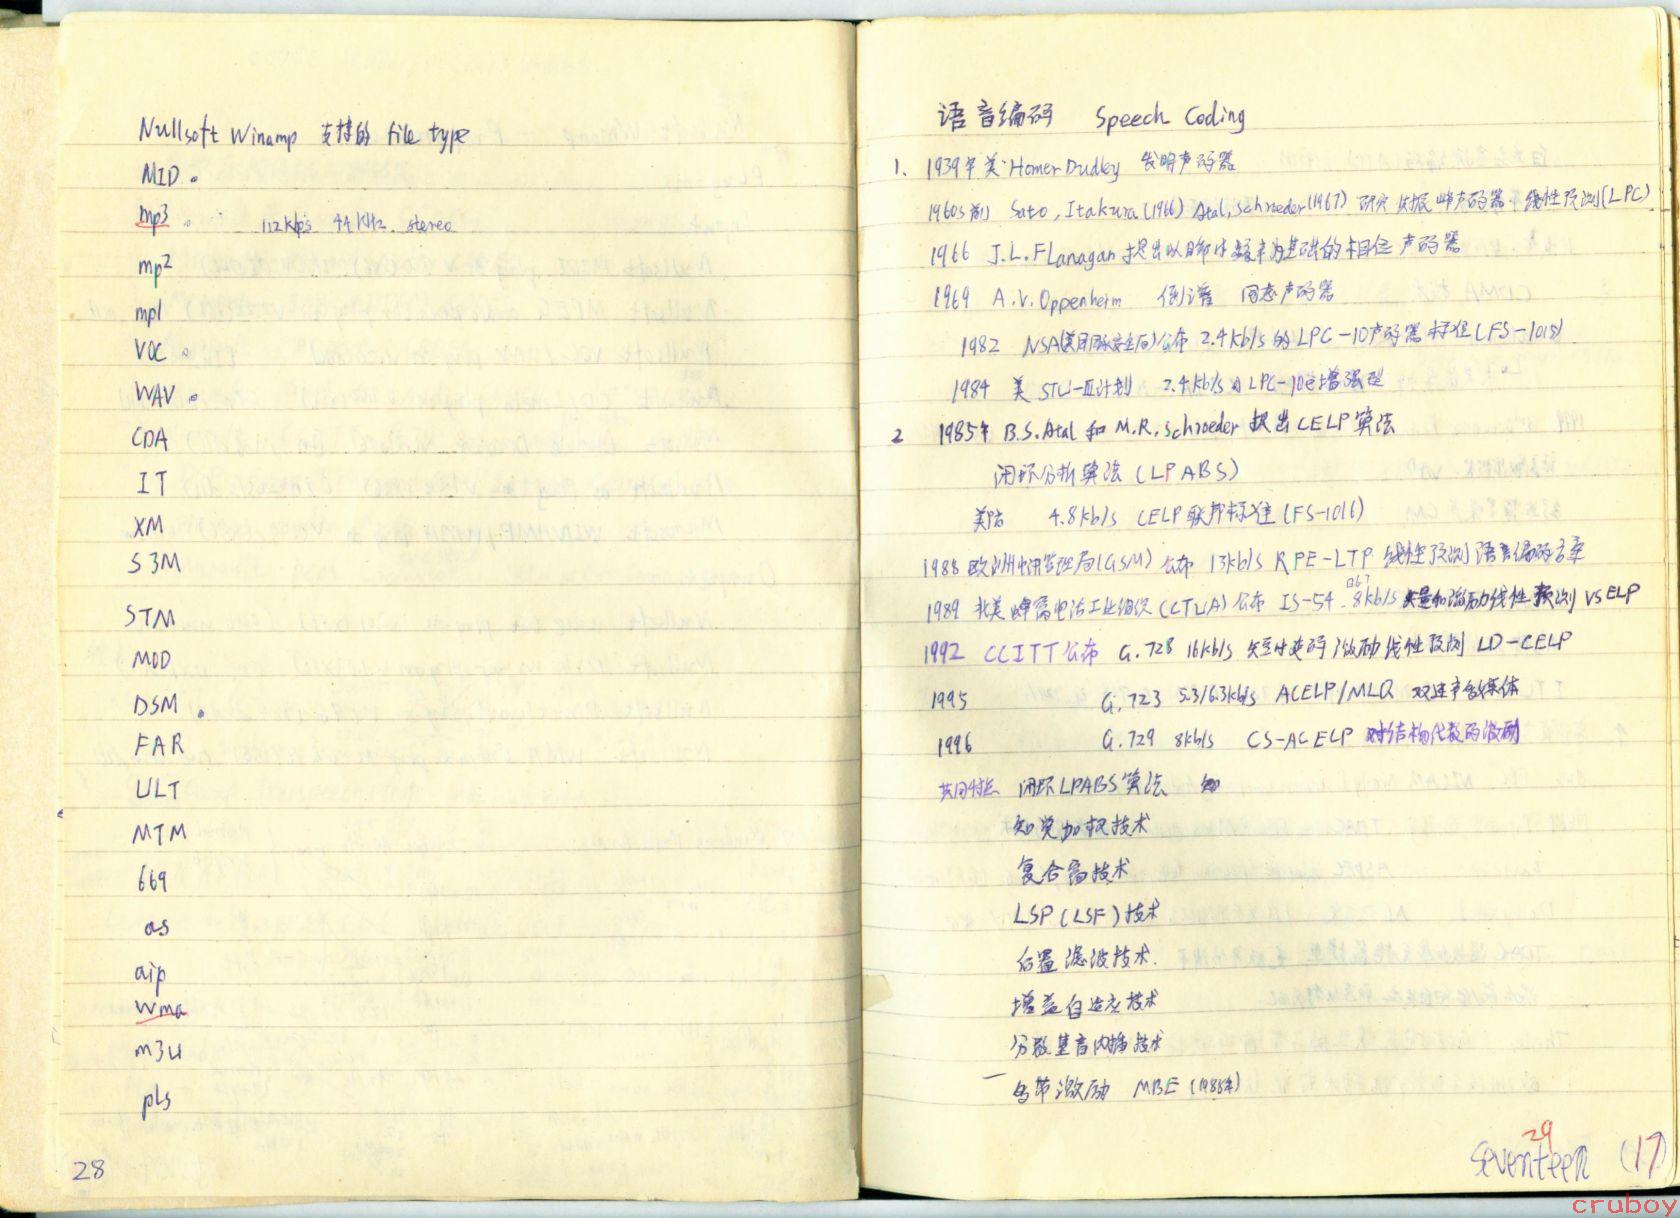 Nullsoft Winamp 支持的 file type
MID .
mp3 . 112kbps 44KHz stereo
mp2
mp1
VOC .
WAV .
CDA
IT
XM
S3M
STM
MOD
DSM .
FAR
ULT
MTM
669
as
aip
wma
m3u
pls
28
语音编码 Speech Coding
1. 1939年美 Homer Dudley 发明声码器
1960s前 Sato, Itakura (1966) Atal, Schroeder (1967) 研究共振峰声码器 线性预测(LPC)
1966 J.L.Flanagan 提出以瞬时频率为基础的相位声码器
1969 A.V.Oppenheim 倒谱 同态声码器
1982 NSA(美国国家安全局)公布 2.4kb/s 的 LPC-10声码器标准(FS-1015)
1984 美 STU-III计划 2.4kb/s LPC-10e增强型
2 1985年 B.S.Atal 和 M.R.Schroeder 提出 CELP 算法
闭环分析算法 (LPABS)
4.8kb/s CELP 联邦标准 (FS-1016)
1988 (GSM) 公布 13kb/s RPE-LTP 线性预测语音编码方案
1989 北美蜂窝电话工业组织 (CTIA) 公布 IS-54 8kb/s 矢量和激励线性预测 VSELP
1992 CCITT公布 G.728 16kb/s 短时延码激励线性预测 LD-CELP
1995 G.723 5.3/6.3kb/s ACELP/MLQ 双速率多媒体
1996 G.729 8kb/s CS-ACELP 对结构代数码激励
共同特点 闭环LPABS算法
知觉加权技术
复合窗技术
LSP (LSF) 技术
后置滤波技术.
增益自适应技术
分数基音内插技术
多带激励 MBE (1988年)
29
Seventeen (17)
cruboy